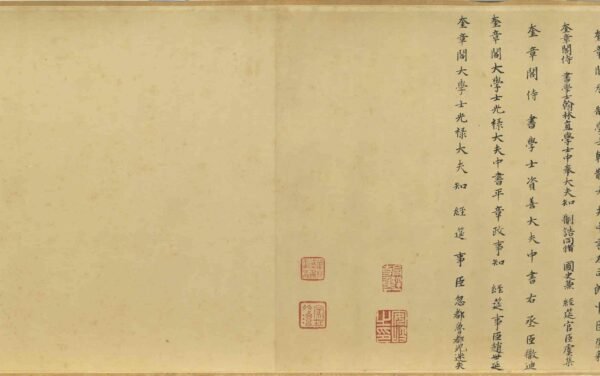 奎章閣侍書學士翰林直學士中奉大夫知制誥同脩國史兼經筵官臣虞集
奎章閣侍書學士資善大夫中書右丞臣撒迪
奎章閣大學士光祿大夫中書平章政事知經筵事臣趙世延
奎章閣大學士光祿大夫知經筵事臣忽都魯都兒迷失